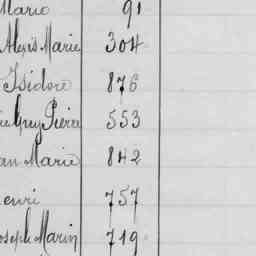 Mario 91
Alexis Marie 304
Isidore 876
Pierre 553
an Marie 842
enri 757
oseph Marin 719